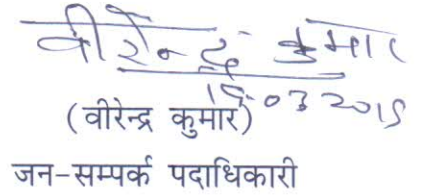 वीरेन्द्र कुमार
03 2015
(वीरेन्द्र कुमार)
जन-सम्पर्क पदाधिकारी